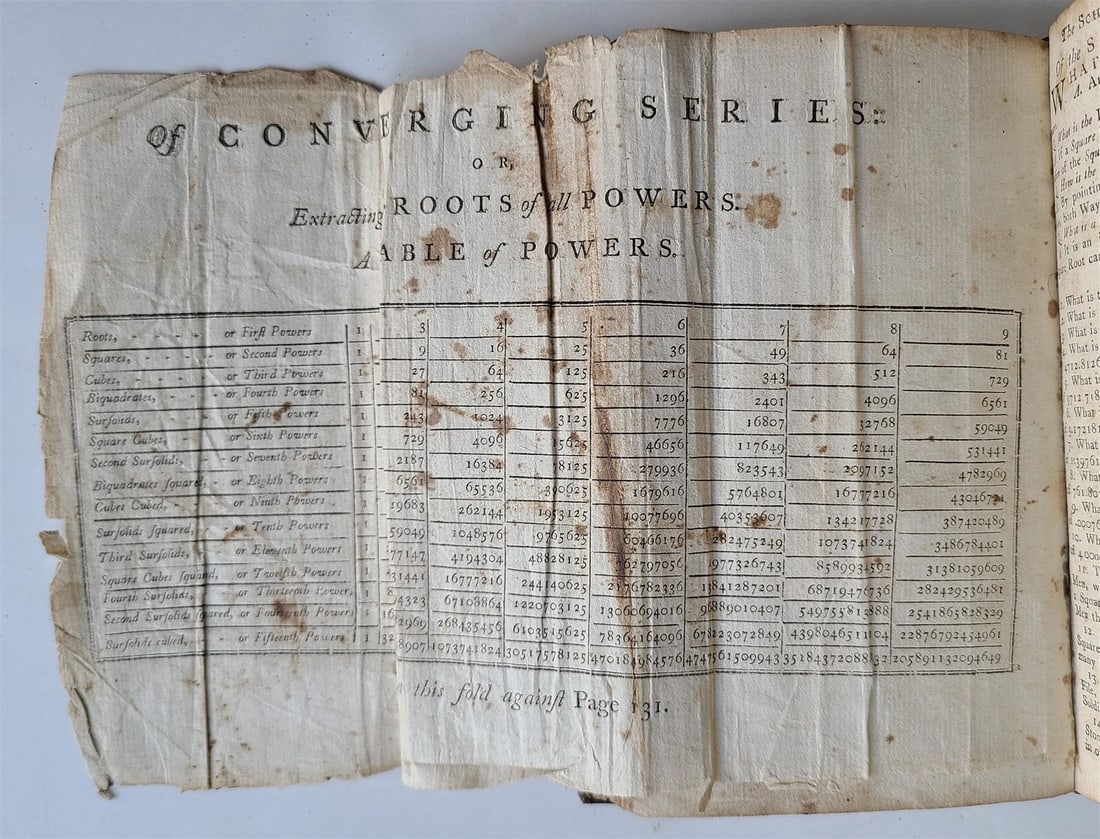 Of CONVERGING SERIES:
OR,
Extracting ROOTS of all POWERS.
A TABLE of POWERS.
Roots, - - - - or First Powers 1 3 4 5 6 7 8 9
Squares, - - - - or Second Powers 1 9 16 25 36 49 64 81
Cubes, - - - - or Third Powers 1 27 64 125 216 343 512 729
Biquadrates, - - - or Fourth Powers 1 81 256 625 1296 2401 4096 6561
Sursolids, - - - or Fifth Powers 1 243 1024 3125 7776 16807 32768 59049
Square Cubes, - - or Sixth Powers 1 729 4096 15625 46656 117649 262144 531441
Second Sursolids, - - or Seventh Powers 1 2187 16384 78125 279936 823543 2097152 4782969
Biquadrates squared, - or Eighth Powers 1 6561 65536 390625 1679616 5764801 16777216 43046721
Cubes Cubed, - - or Ninth Powers 1 19683 262144 1953125 10077696 40353607 134217728 387420489
Sursolids squared, - - or Tenth Powers 1 59049 1048576 9765625 60466176 282475249 1073741824 3486784401
Third Sursolids, - - or Eleventh Powers 1 77147 4194304 48828125 362797056 1977326743 8589934592 31381059609
Square Cubes squared, or Twelfth Powers 1 31441 16777216 244140625 2176782336 13841287201 68719476736 282429536481
Fourth Sursolids, - or Thirteenth Powers 1 8 4323 67108864 1220703125 13060694016 96889010407 549755813888 2541865828329
Second Sursolids squared, or Fourteenth Powers 1 16 2969 268435456 6103515625 78364164096 678223072849 4398046511104 22876792454961
Sursolids cubed, - or Fifteenth Powers 1 32 8907 1073741824 30517578125 470184984576 4747561509943 35184372088832 205891132094649
this fold against Page 131.
The SCH
Of the S
WHAT
A. A
What is the
if a Square
of the Squ
How is the
By pointin
both Way
What is a
It is an
Root can
What is t
What is
What is
What is
What is